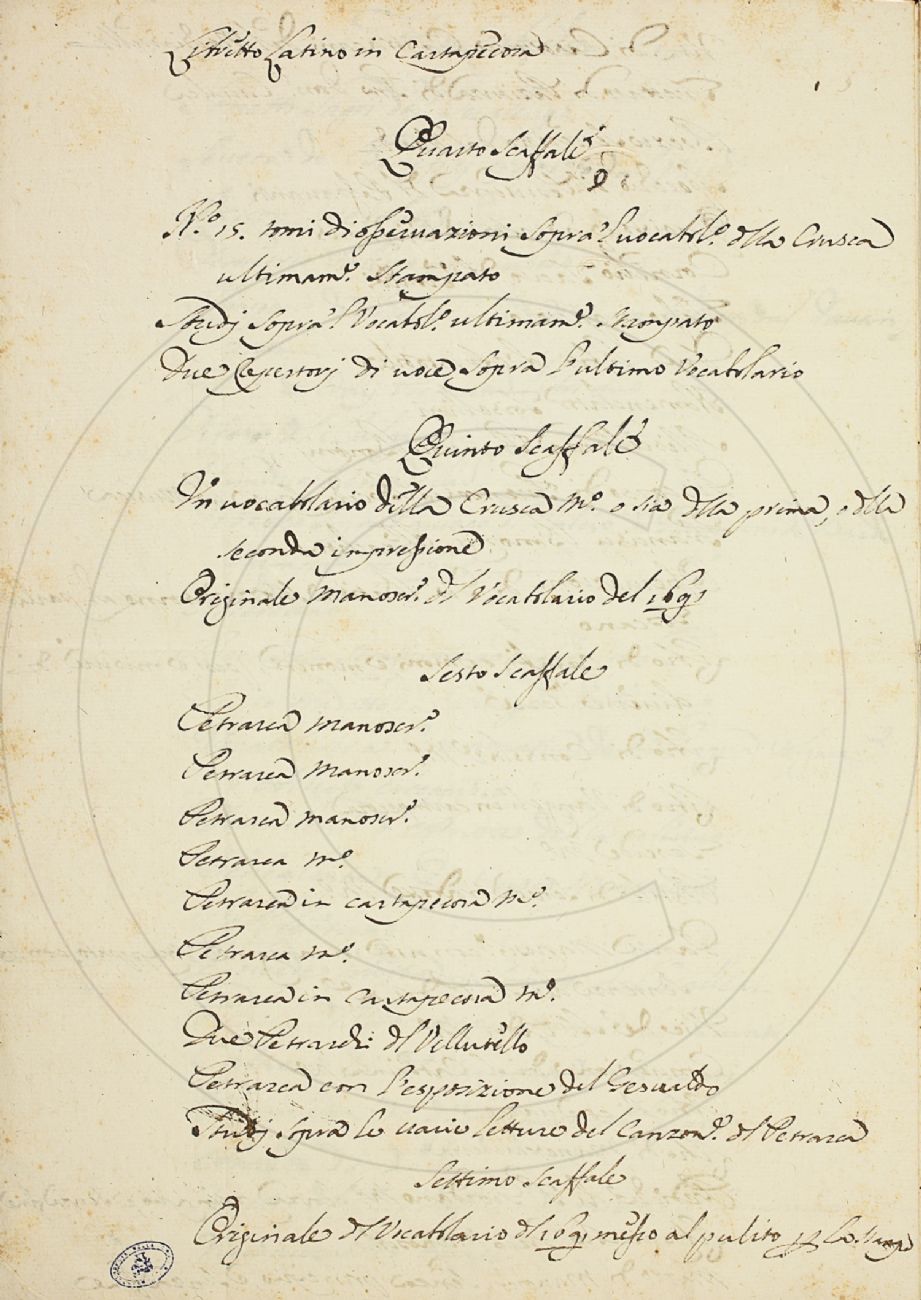 Libretto Latino in Cartapecora
Quarto Scaffale
N.º 15. tomi di osseruazioni sopra l'uocabl.º della Crusca
ultimam.e Stampato
Studj sopra l'Vocabl.º ultimam.e Stampato
Due Repertorj di uoce sopra l'ultimo Vocabolario
Quinto Scaffale
Un uocabolario della Crusca M.º o sia della prima, o della
seconda impressione
Originale Manoscr.º del Vocabolario del 1691
Sesto Scaffale
Petrarca Manoscr.º
Petrarca Manoscr.º
Petrarca Manoscr.º
Petrarca M.º
Petrarca in cartapecora M.º
Petrarca M.º
Petrarca in cartapecora M.º
Due Petrarchi del Vellutello
Petrarca con l'esposizione del Gesualdo
Studj sopra le uarie letture del Canzon.e del Petrarca
Settimo Scaffale
Originale del Vocabolario del 1691 messo al pulito per la